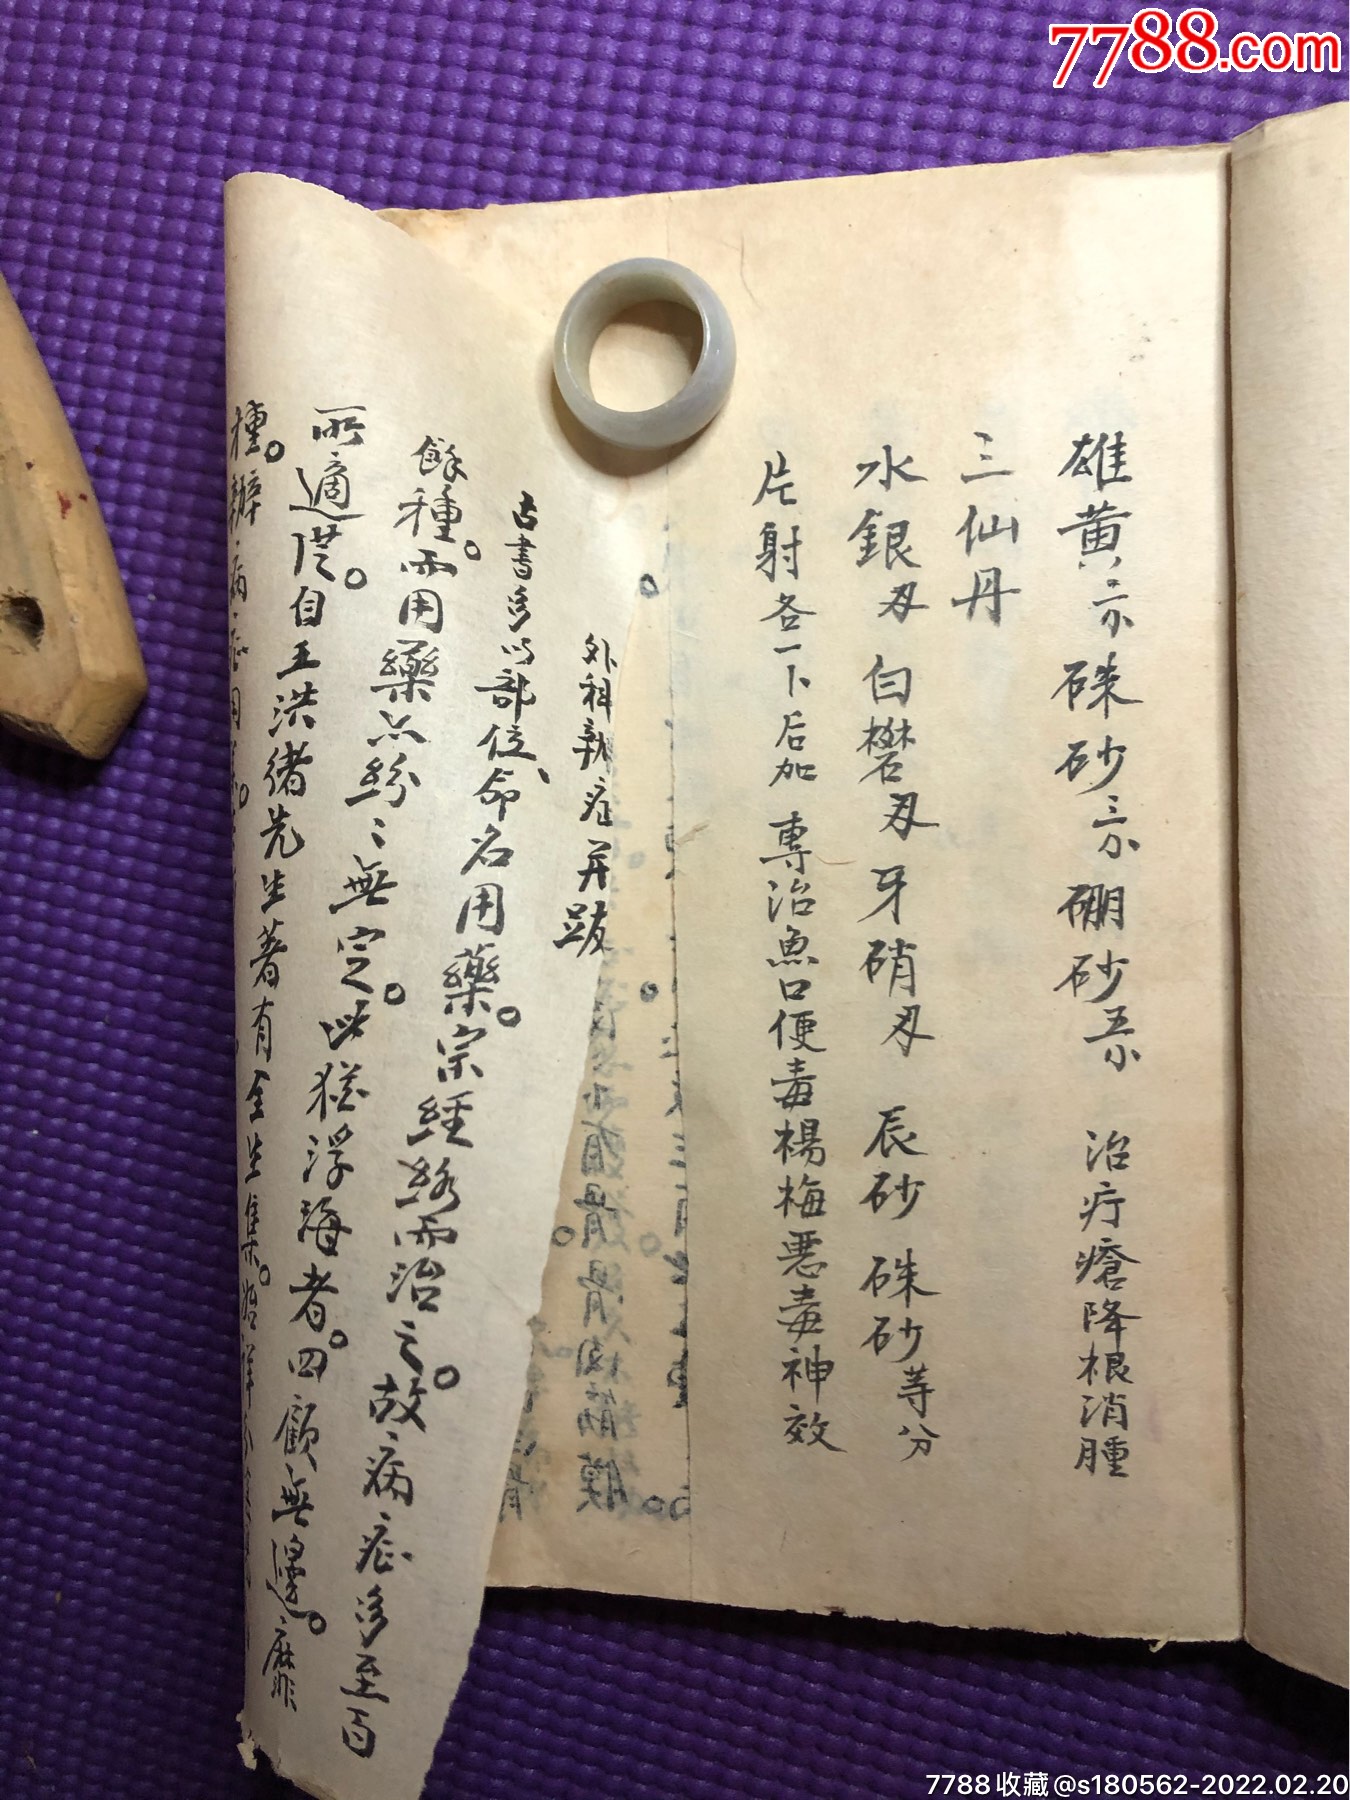 7788.com
雄黄三分 硃砂三分 硼砂五分 治疔瘡降根消腫
三仙丹
水銀 白礬 牙硝 辰砂 硃砂等分
片射各一卜后加 專治魚口便毒楊梅悪毒神效
外科辦症并跋
古書多以部位、命名用藥。宗經絡而治之。故病症多至百
餘種。而用藥亦紛〻無定。此猶浮海者。四顧無邊。靡
所適從。自王洪緒先生著有全生集。始詳分
種。辦病症用
7788收藏@s180562-2022.02.20